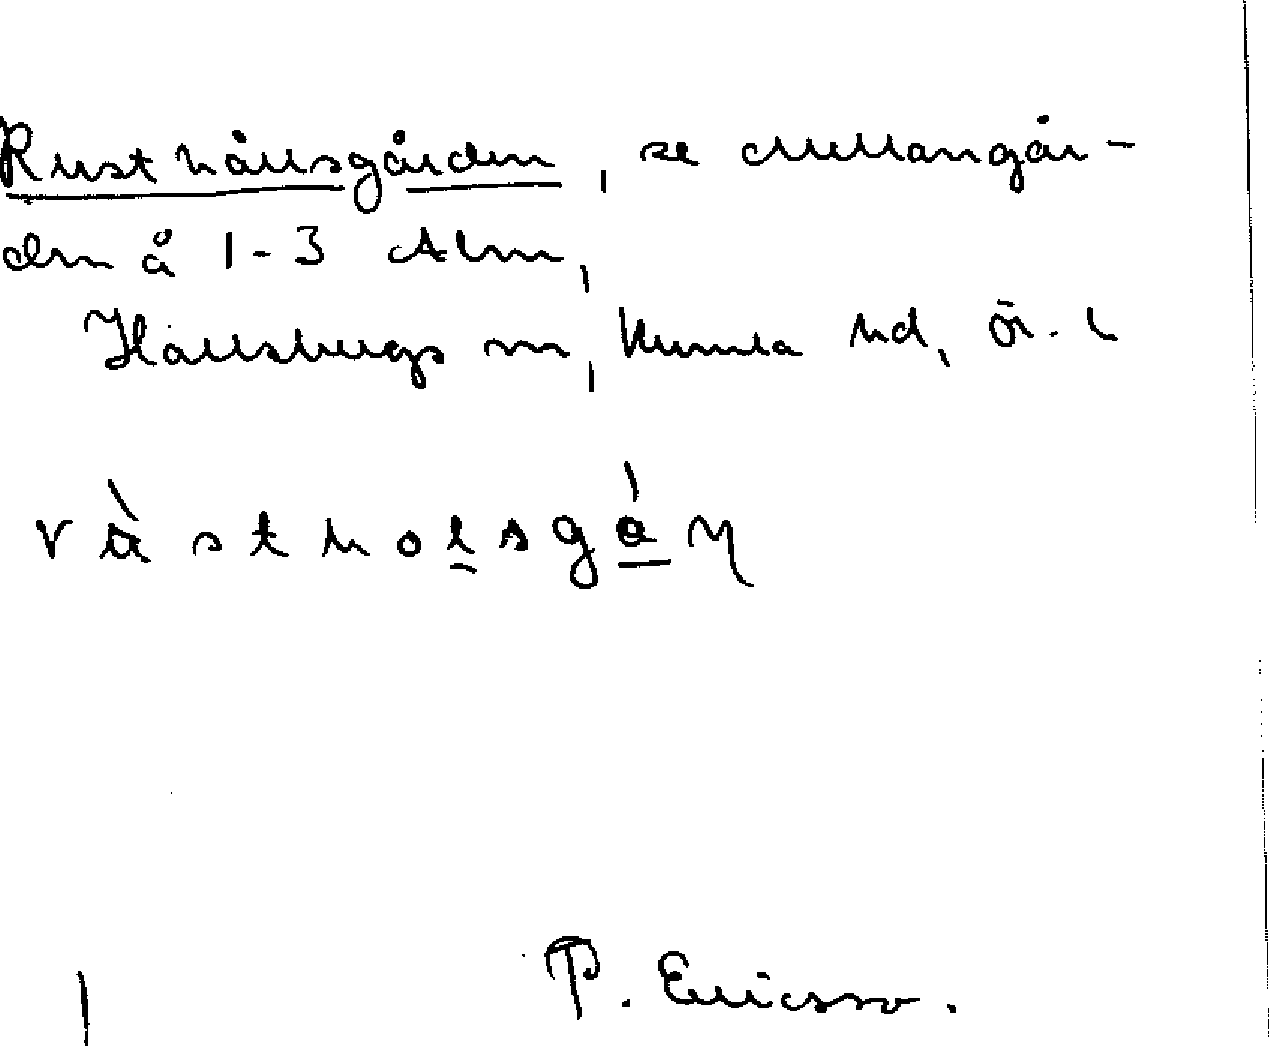 Rusthållsgården, se Mellangår-
den å 1-3 Alm,
Hallsbergs sn, Kumla hd, Ör. l
P. Ericsson.